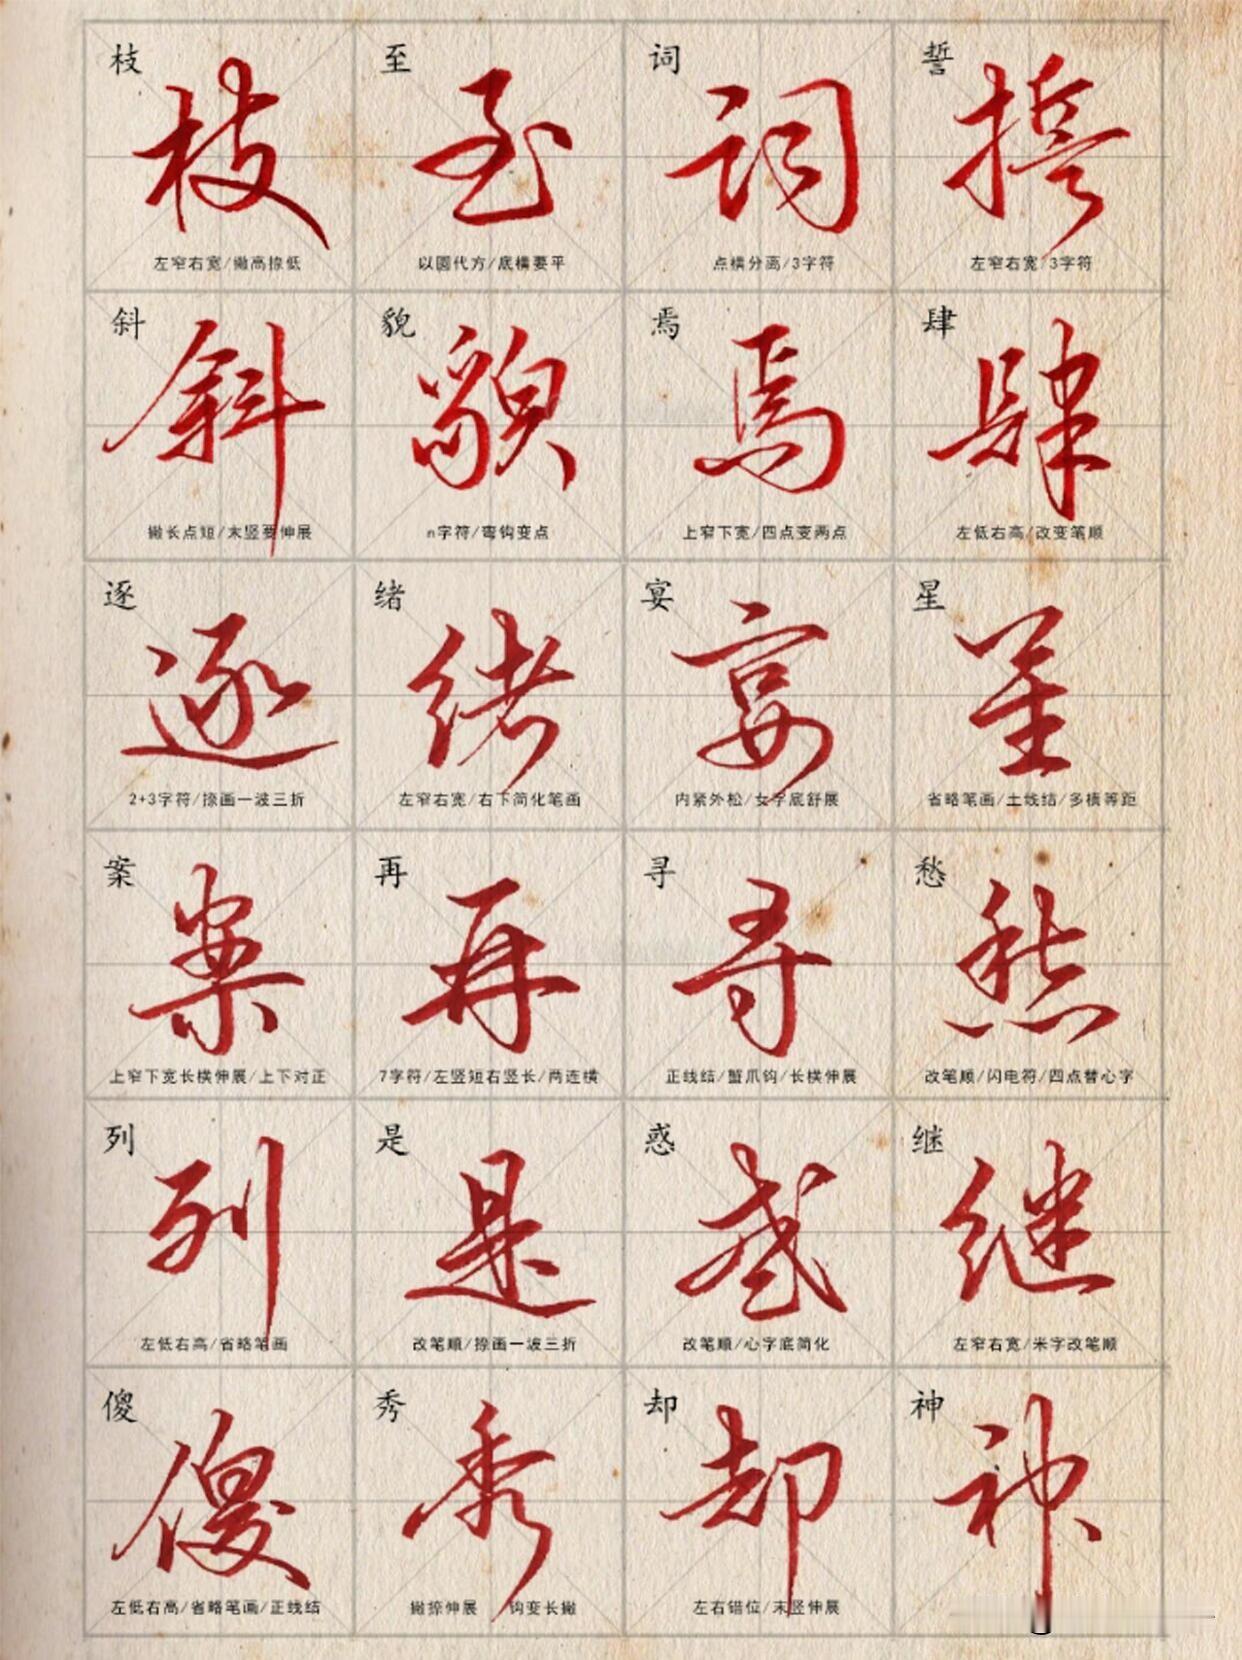 枝 至 词 誓
枝 至 词 誓
左窄右宽/撇高捺低 以圆代方/底横要平 点横分离/3字符 左窄右宽/3字符
斜 貌 焉 肆
斜 貌 焉 肆
撇长点短/末竖要伸展 n字符/弯钩变点 上窄下宽/四点变两点 左低右高/改变笔顺
逐 绪 宴 星
逐 绪 宴 星
2+3字符/捺画一波三折 左窄右宽/右下简化笔画 内紧外松/女字底舒展 省略笔画/土线结/多横等距
案 再 寻 愁
案 再 寻 愁
上窄下宽长横伸展/上下对正 7字符/左竖短右竖长/两连横 正线结/蟹爪钩/长横伸展 改笔顺/闪电符/四点替心字
列 是 惑 继
列 是 惑 继
左低右高/省略笔画 改笔顺/捺画一波三折 改笔顺/心字底简化 左窄右宽/米字改笔顺
傻 秀 却 神
傻 秀 却 神
左低右高/省略笔画/正线结 撇捺伸展 钩变长撇 左右错位/末竖伸展